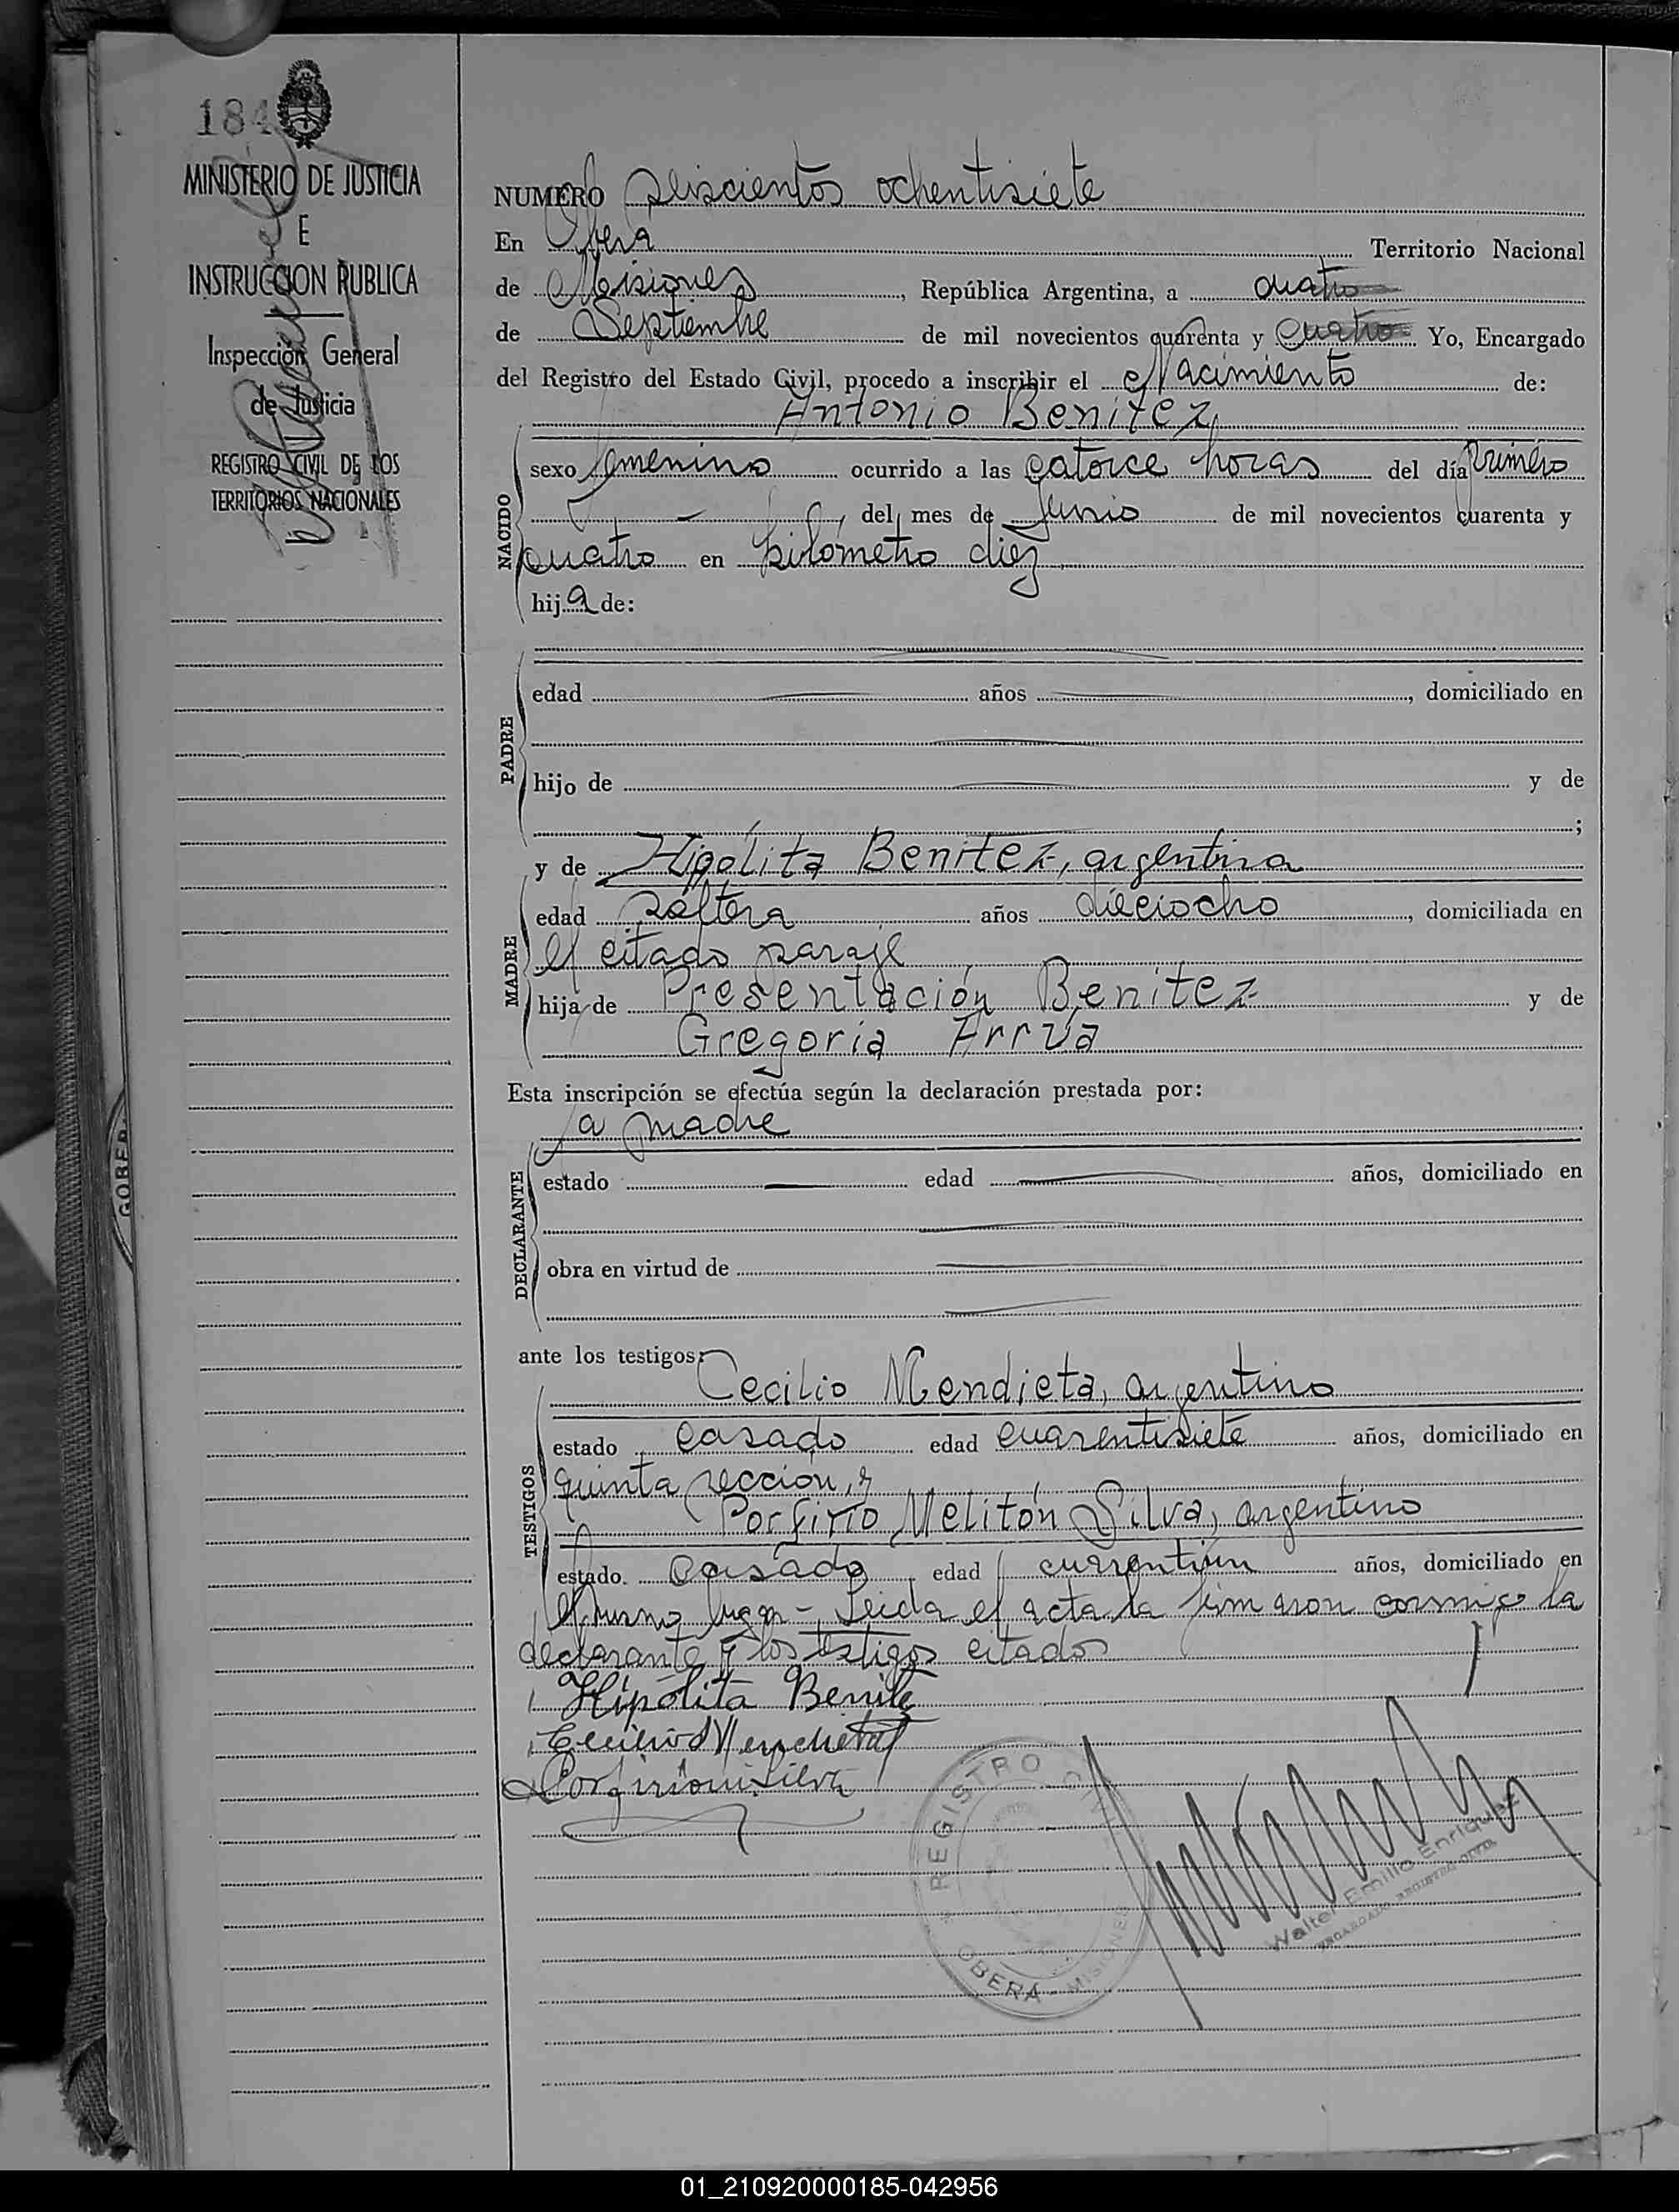 184
MINISTERIO DE JUSTICIA
E
INSTRUCCION PUBLICA
Inspección General
de Justicia
REGISTRO CIVIL DE LOS
TERRITORIOS NACIONALES
NUMERO seiscientos ochentisiete
En Oberá Territorio Nacional
de Misiones, República Argentina, a cuatro
de Septiembre de mil novecientos cuarenta y cuatro Yo, Encargado
del Registro del Estado Civil, procedo a inscribir el Nacimiento de:
Antonio Benitez
NACIDO
sexo femenino ocurrido a las catorce horas del día primero
, del mes de Junio de mil novecientos cuarenta y
cuatro en kilómetro diez
hija de:
PADRE
edad años , domiciliado en
hijo de y de
;
y de Hipólita Benitez, argentina
MADRE
edad soltera años dieciocho, domiciliada en
el citado paraje
hija de Presentación Benitez y de
Gregoria Arrúa
Esta inscripción se efectúa según la declaración prestada por:
la madre
DECLARANTE
estado edad años, domiciliado en
obra en virtud de
ante los testigos:
Cecilio Mendieta, argentino
TESTIGOS
estado casado edad cuarentisiete años, domiciliado en
quinta sección, y
Porfirio Melitón Silva, argentino
estado casado edad cuarentiun años, domiciliado en
el mismo lugar - Leida el acta la firmaron conmigo la
declarante y los testigos citados
Hipólita Benite
Cecilio Mendieta
Porfirio M. Silva
REGISTRO CIVIL
OBERÁ - MISIONES
Walter Emilio Enriquez
ENCARGADO REGISTRO CIVIL
GOBER
01_210920000185-042956